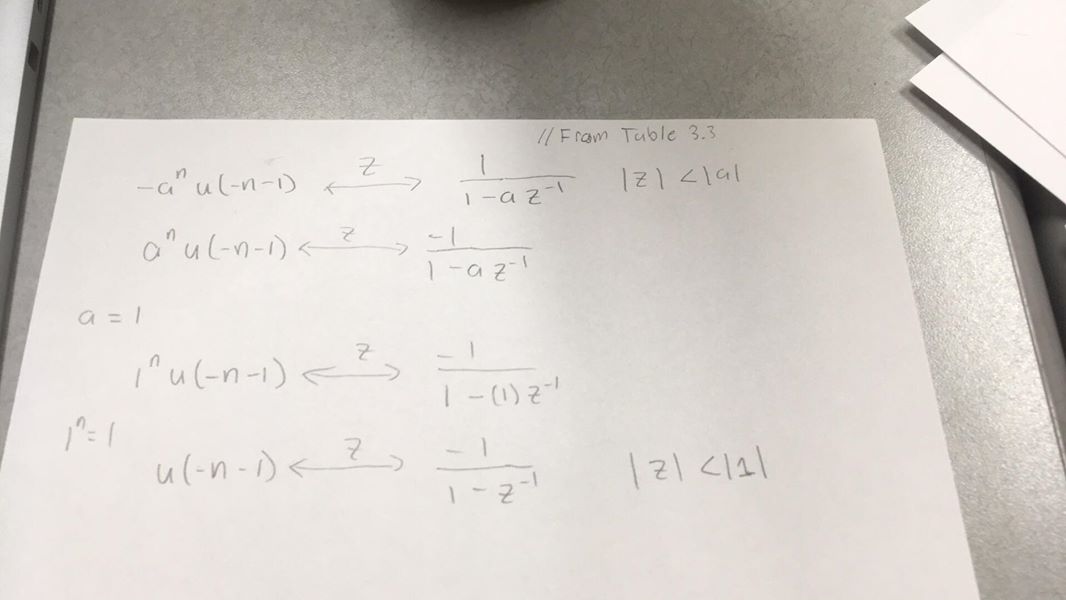 // From Table 3.3
-aⁿ u(-n-1) ⟷ᶻ 1/(1-az⁻¹) |z| <|a|
aⁿ u(-n-1) ⟷ᶻ -1/(1-az⁻¹)
a = 1
1ⁿ u(-n-1) ⟷ᶻ -1/(1-(1)z⁻¹)
1ⁿ=1
u(-n-1) ⟷ᶻ -1/(1-z⁻¹) |z| <|1|